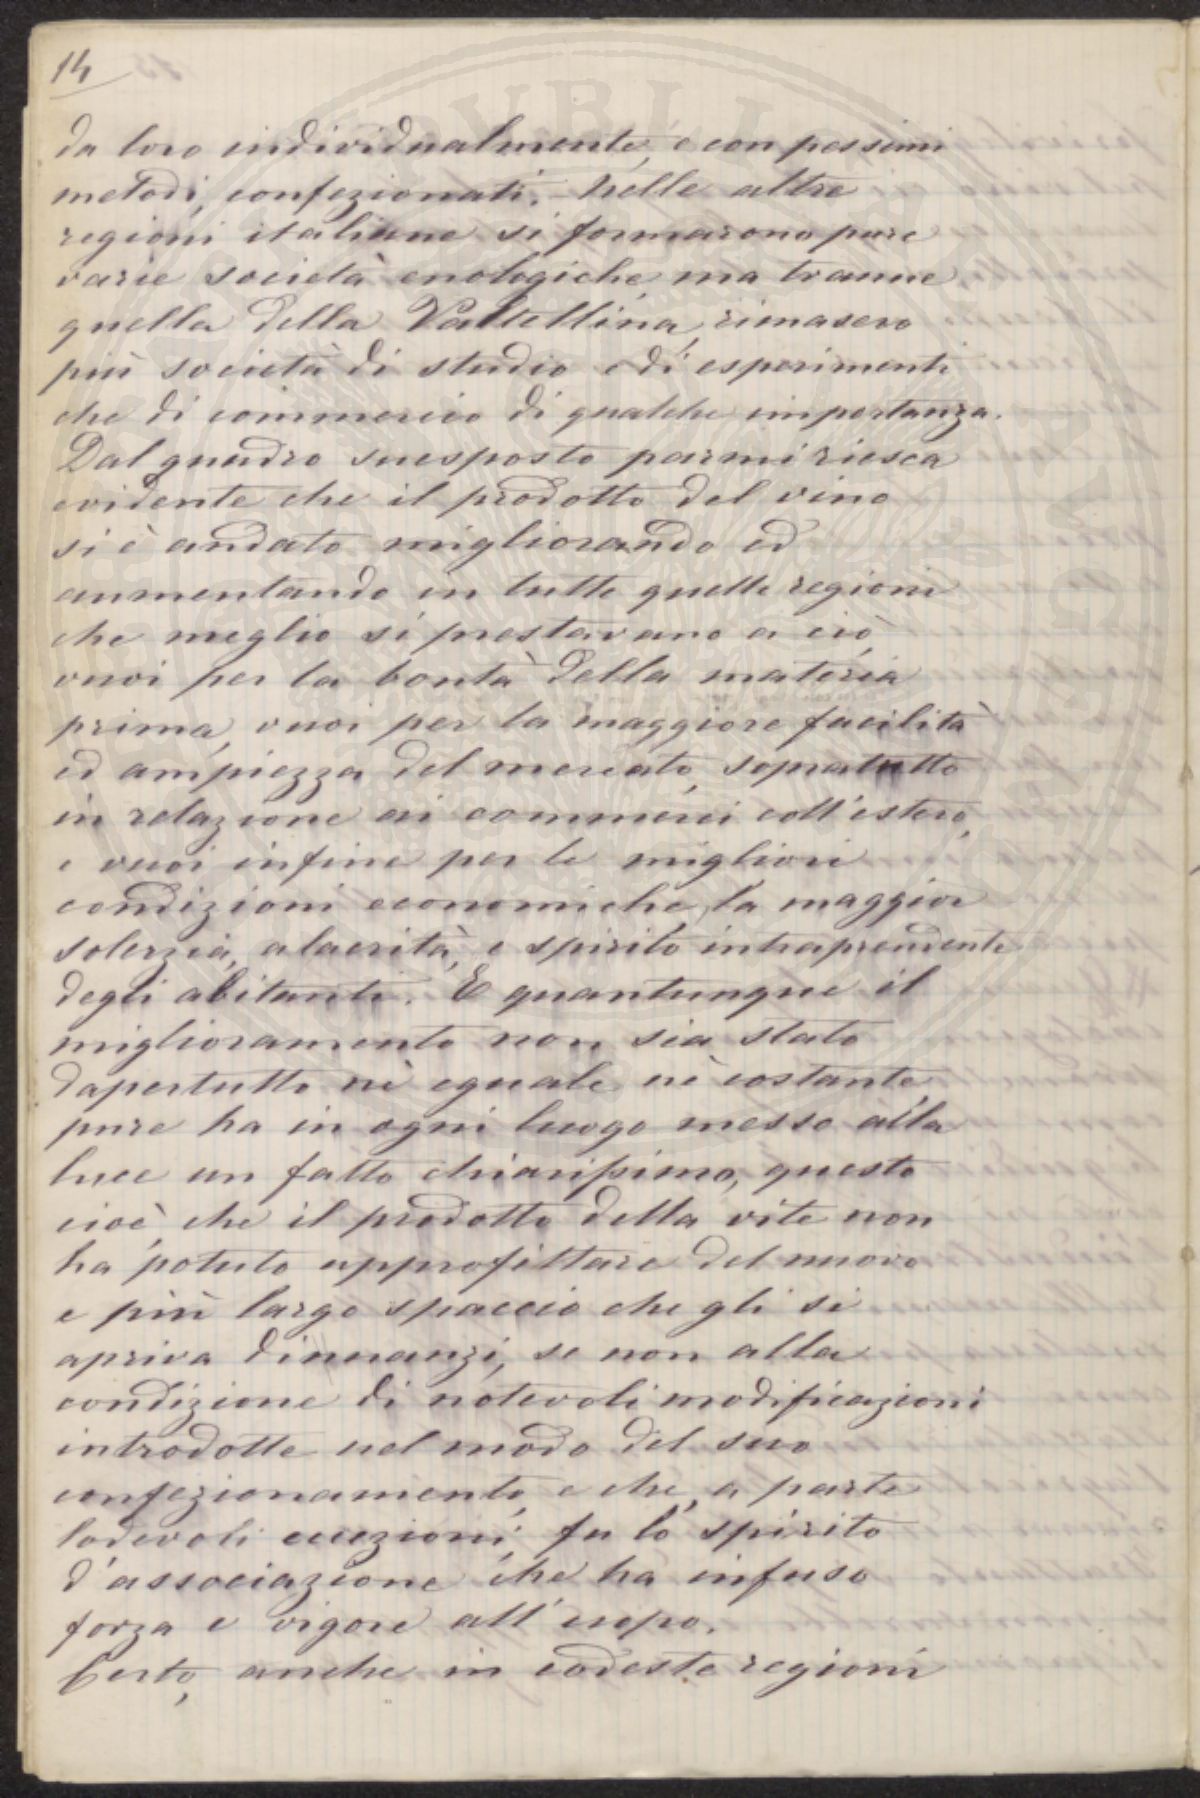 14
da loro individualmente, e con pessimi
metodi, confezionati. Nelle altre
regioni italiane si formarono pure
varie società enologiche, ma tranne
quella della Valtellina, rimasero
più società di studio e di esperimenti
che di commercio di qualche importanza.
Dal quadro suesposto parmi riesca
evidente che il prodotto del vino
si è andato migliorando ed
aumentando in tutte quelle regioni
che meglio si prestavano a ciò,
vuoi per la bontà della materia
prima, vuoi per la maggiore facilità
ed ampiezza del mercato, sopratutto
in relazione ai commerci coll'estero,
e vuoi infine per le migliori
condizioni economiche, la maggior
solerzia, alacrità, e spirito intraprendente
degli abitanti. E quantunque il
miglioramento non sia stato
dapertutto nè eguale nè costante,
pure ha in ogni luogo messo alla
luce un fatto chiarissimo, questo
cioè, che il prodotto della vite non
ha potuto approfittare del nuovo
e più largo spaccio che gli si
apriva dinnanzi, se non alla
condizione di notevoli modificazioni
introdotte nel modo del suo
confezionamento, e che, a parte
lodevoli eccezioni, fu lo spirito
d'associazione che ha infuso
forza e vigore all'uopo.
Certo, anche in codeste regioni